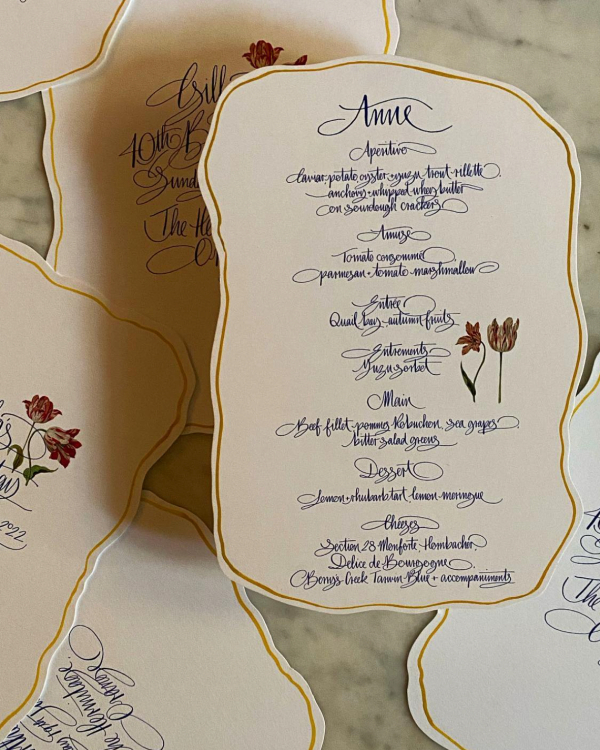 Anne
Aperitivo
Caviar, potato, oyster + yuzu, trout rillette,
anchovy + whipped whey butter
on sourdough crackers
Amuse
Tomato consommé
parmesan + tomato marshmallow
Entrée
Quail, bay, autumn fruits
Entremets
Yuzu sorbet
Main
Beef fillet, pommes Robuchon, sea grapes,
bitter salad greens
Dessert
Lemon + rhubarb tart, lemon meringue
Cheeses
Section 28 Monforte, Hornbacher,
Delice de Bourgogne,
Berrys Creek Tarwin Blue + accompaniments
40th
The
The Hermitage
Orange